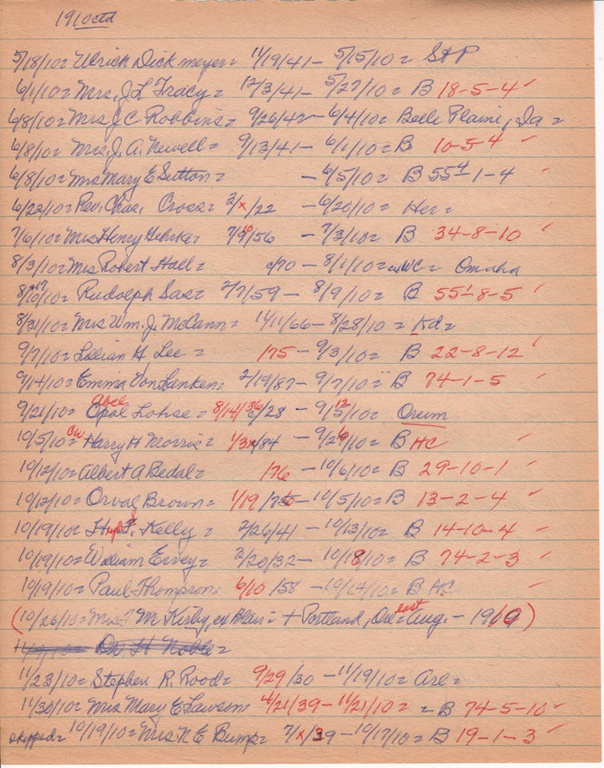 1910 ctd
5/18/10 = Ulrick Dickmeyer = 11/19/41 - 5/15/10 = St P
6/1/10 = Mrs. J L Tracy = 12/3/41 - 5/27/10 = B 18-5-4 ✓
6/8/10 = Mrs J C Robbins = 9/26/42 - 6/4/10 = Belle Plaine, Ia =
6/8/10 = Mrs. J. A. Newell = 9/13/41 - 6/1/10 = B 10-5-4 ✓
6/8/10 = Mrs Mary E Sutton = - 6/5/10 = B 55-1-4 ✓
6/22/10 = Rev. Chas. Cross = 2/x/22 - 6/20/10 = Her =
7/6/10 = Mrs Henry Gehrke = /56 - 7/3/10 = B 34-8-10 ✓
8/3/10 = Mrs Robert Hall = c/70 - 8/1/10 = = Omaha
/10 = Rudolph Sas = 2/7/59 - 8/9/10 = B 55-8-5 ✓
8/31/10 = Mrs Wm. J McCann = 1/11/66 - 8/28/10 = Kd =
9/7/10 = Lillian H Lee = /75 - 9/3/10 = B 22-8-12 ✓
9/14/10 = Emma Von Lanken = 2/19/87 - 9/7/10 = B 74-1-5 ✓
9/21/10 = Opal Abel Lohse = 8/14/ /28 - /10 = Orum
10/5/10 = Harry H Morris = /84 - /10 = B HC ✓
10/12/10 = Albert A Bedal = /76 - 10/6/10 = B 29-10-1 ✓
10/12/10 = Orval Brown = 1/19/ - 10/5/10 = B 13-2-4 ✓
10/19/10 = Kelly = 2/26/41 - 10/13/10 = B 14-10-4 ✓
10/19/10 = William Ervey = 2/20/32 - 10/18/10 = B 74-2-3 ✓
10/19/10 = Paul Thompson = 6/10/58 - 10/14/10 = B HC ✓
(10/26/10 = Mrs M Kirby, ex Blair = + Portland, Ore = last Aug. - 1910)
Dr H Noble =
11/23/10 = Stephen R. Rood = 9/29/30 - 11/19/10 = Arl =
11/30/10 = Mrs Mary E Lawson = 4/21/39 - 11/21/10 = = B 74-5-10 ✓
skipped = 10/19/10 = Mrs N E Bump = 7/x/39 - 10/17/10 = B 19-1-3 ✓